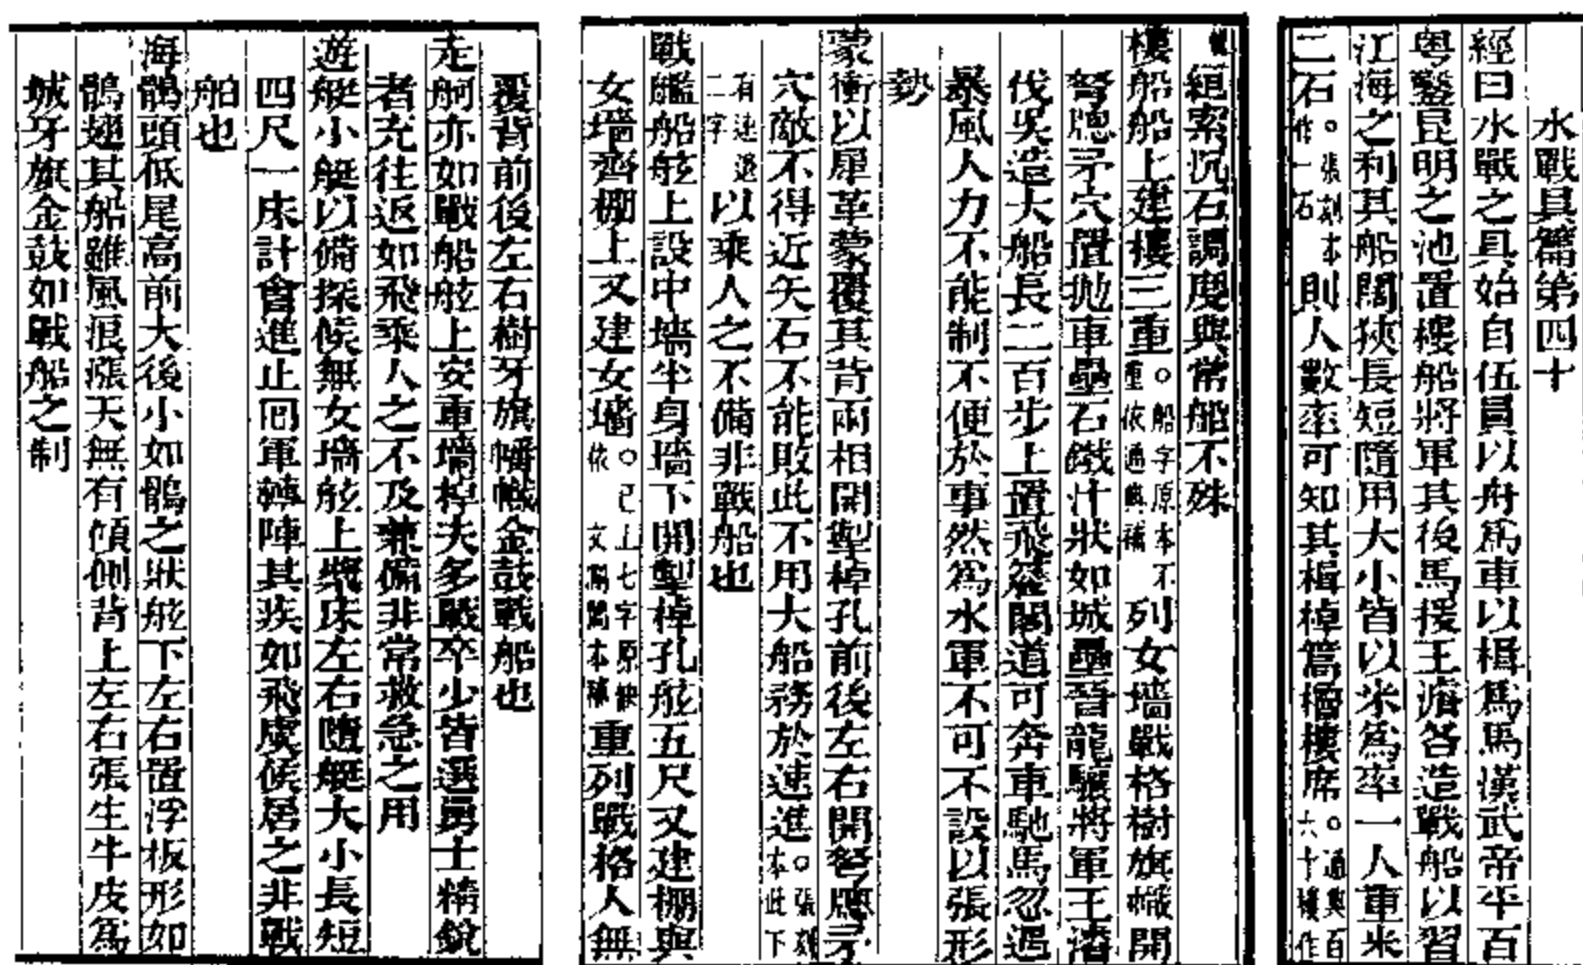 水戰具篇第四十
經曰水戰之具始自伍員以舟為車以楫為馬漢武帝平百
粤鑿昆明之池置樓船將軍其後馬援王濬各造戰船以習
江海之利其船闊狹長短隨用大小皆以米為率一人重米
二石。張刻本作一石則人數率可知其楫棹篙櫓樓席。通典百六十樓作
絙索沉石調度與常船不殊
樓船船上建樓三重。船字原本不重依通典補列女墻戰格樹旗幟開
弩牕矛穴置抛車壘石鐵汁狀如城壘晉龍驤將軍王濬
伐吳造大船長二百步上置飛簷閣道可奔車馳馬忽遇
暴風人力不能制不便於事然為水軍不可不設以張形
勢
蒙衝以犀革蒙覆其背兩相開掣棹孔前後左右開弩牕矛
穴敵不得近矢石不能敗此不用大船務於速進。張刻本此下
有速退二字以乘人之不備非戰船也
戰艦船舷上設中墻半身墻下開掣棹孔舷五尺又建棚與
女墻齊棚上又建女墻。已上七字原缺依文瀾閣本補重列戰格人無
覆背前後左右樹牙旗幡幟金鼓戰船也
走舸亦如戰船舷上安重墻棹夫多戰卒少皆選勇士精銳
者充往返如飛乘人之不及兼備非常救急之用
遊艇小艇以備探候無女墻舷上槳床左右隨艇大小長短
四尺一床計會進止回軍轉陣其疾如飛虞候居之非戰
船也
海鶻頭低尾高前大後小如鶻之狀舷下左右置浮板形如
鶻翅其船雖風浪漲天無有傾側背上左右張生牛皮為
城牙旗金鼓如戰船之制